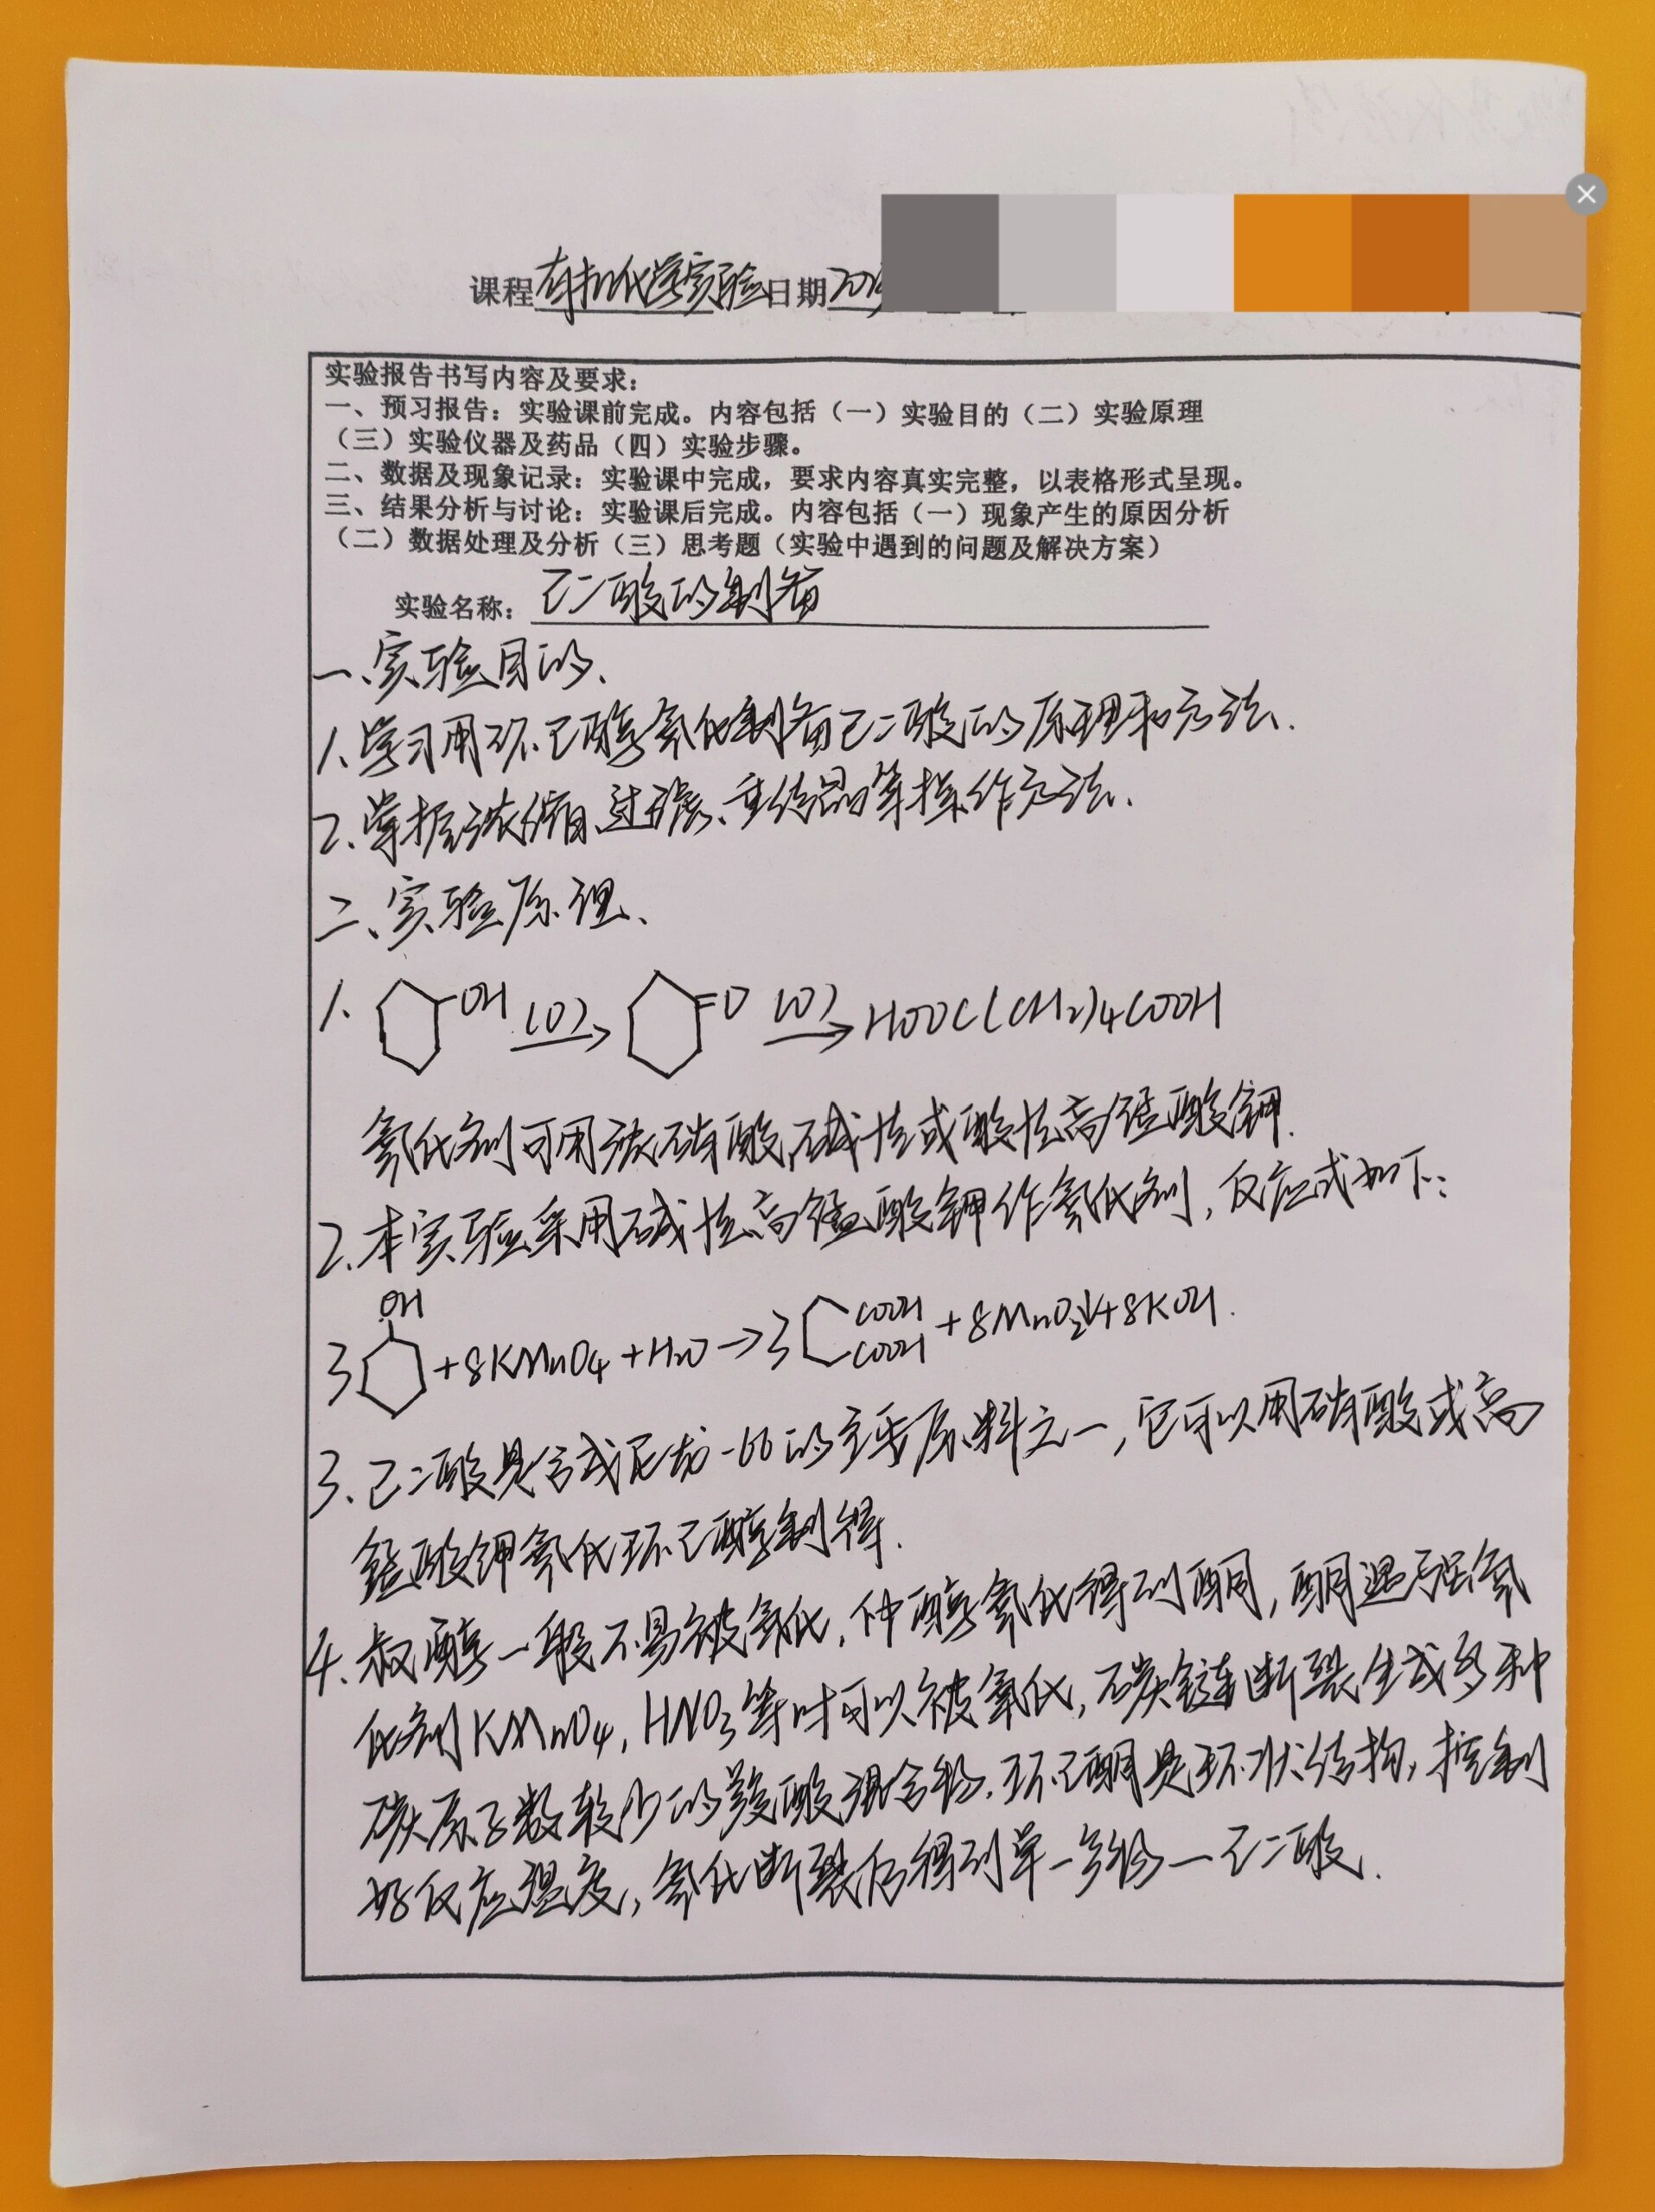 课程 有机化学实验 日期 201
实验报告书写内容及要求：
一、预习报告：实验课前完成。内容包括（一）实验目的（二）实验原理
（三）实验仪器及药品（四）实验步骤。
二、数据及现象记录：实验课中完成，要求内容真实完整，以表格形式呈现。
三、结果分析与讨论：实验课后完成。内容包括（一）现象产生的原因分析
（二）数据处理及分析（三）思考题（实验中遇到的问题及解决方案）
实验名称： 己二酸的制备
一、实验目的、
1. 学习用环己醇氧化制备己二酸的原理和方法.
2. 掌握浓缩、过滤、重结晶等操作方法.
二、实验原理、
1. OH [O]→ =O [O]→ HOOC(CH2)4COOH
氧化剂可用浓硝酸,碱性或酸性高锰酸钾.
2. 本实验采用碱性高锰酸钾作氧化剂，反应式如下：
OH
3 + 8KMnO4 + H2O → 3 COOH COOH + 8MnO2↓ + 8KOH.
3、己二酸是合成尼龙-66的主要原料之一，它可以用硝酸或高
锰酸钾氧化环己醇制得.
4. 叔醇一般不易被氧化，仲醇氧化得到酮，酮遇强氧
化剂KMnO4，HNO3等时可以被氧化，碳链断裂生成多种
碳原子数较少的羧酸混合物.环己酮是环状结构，控制
好反应温度，氧化断裂后得到单一产物—己二酸.